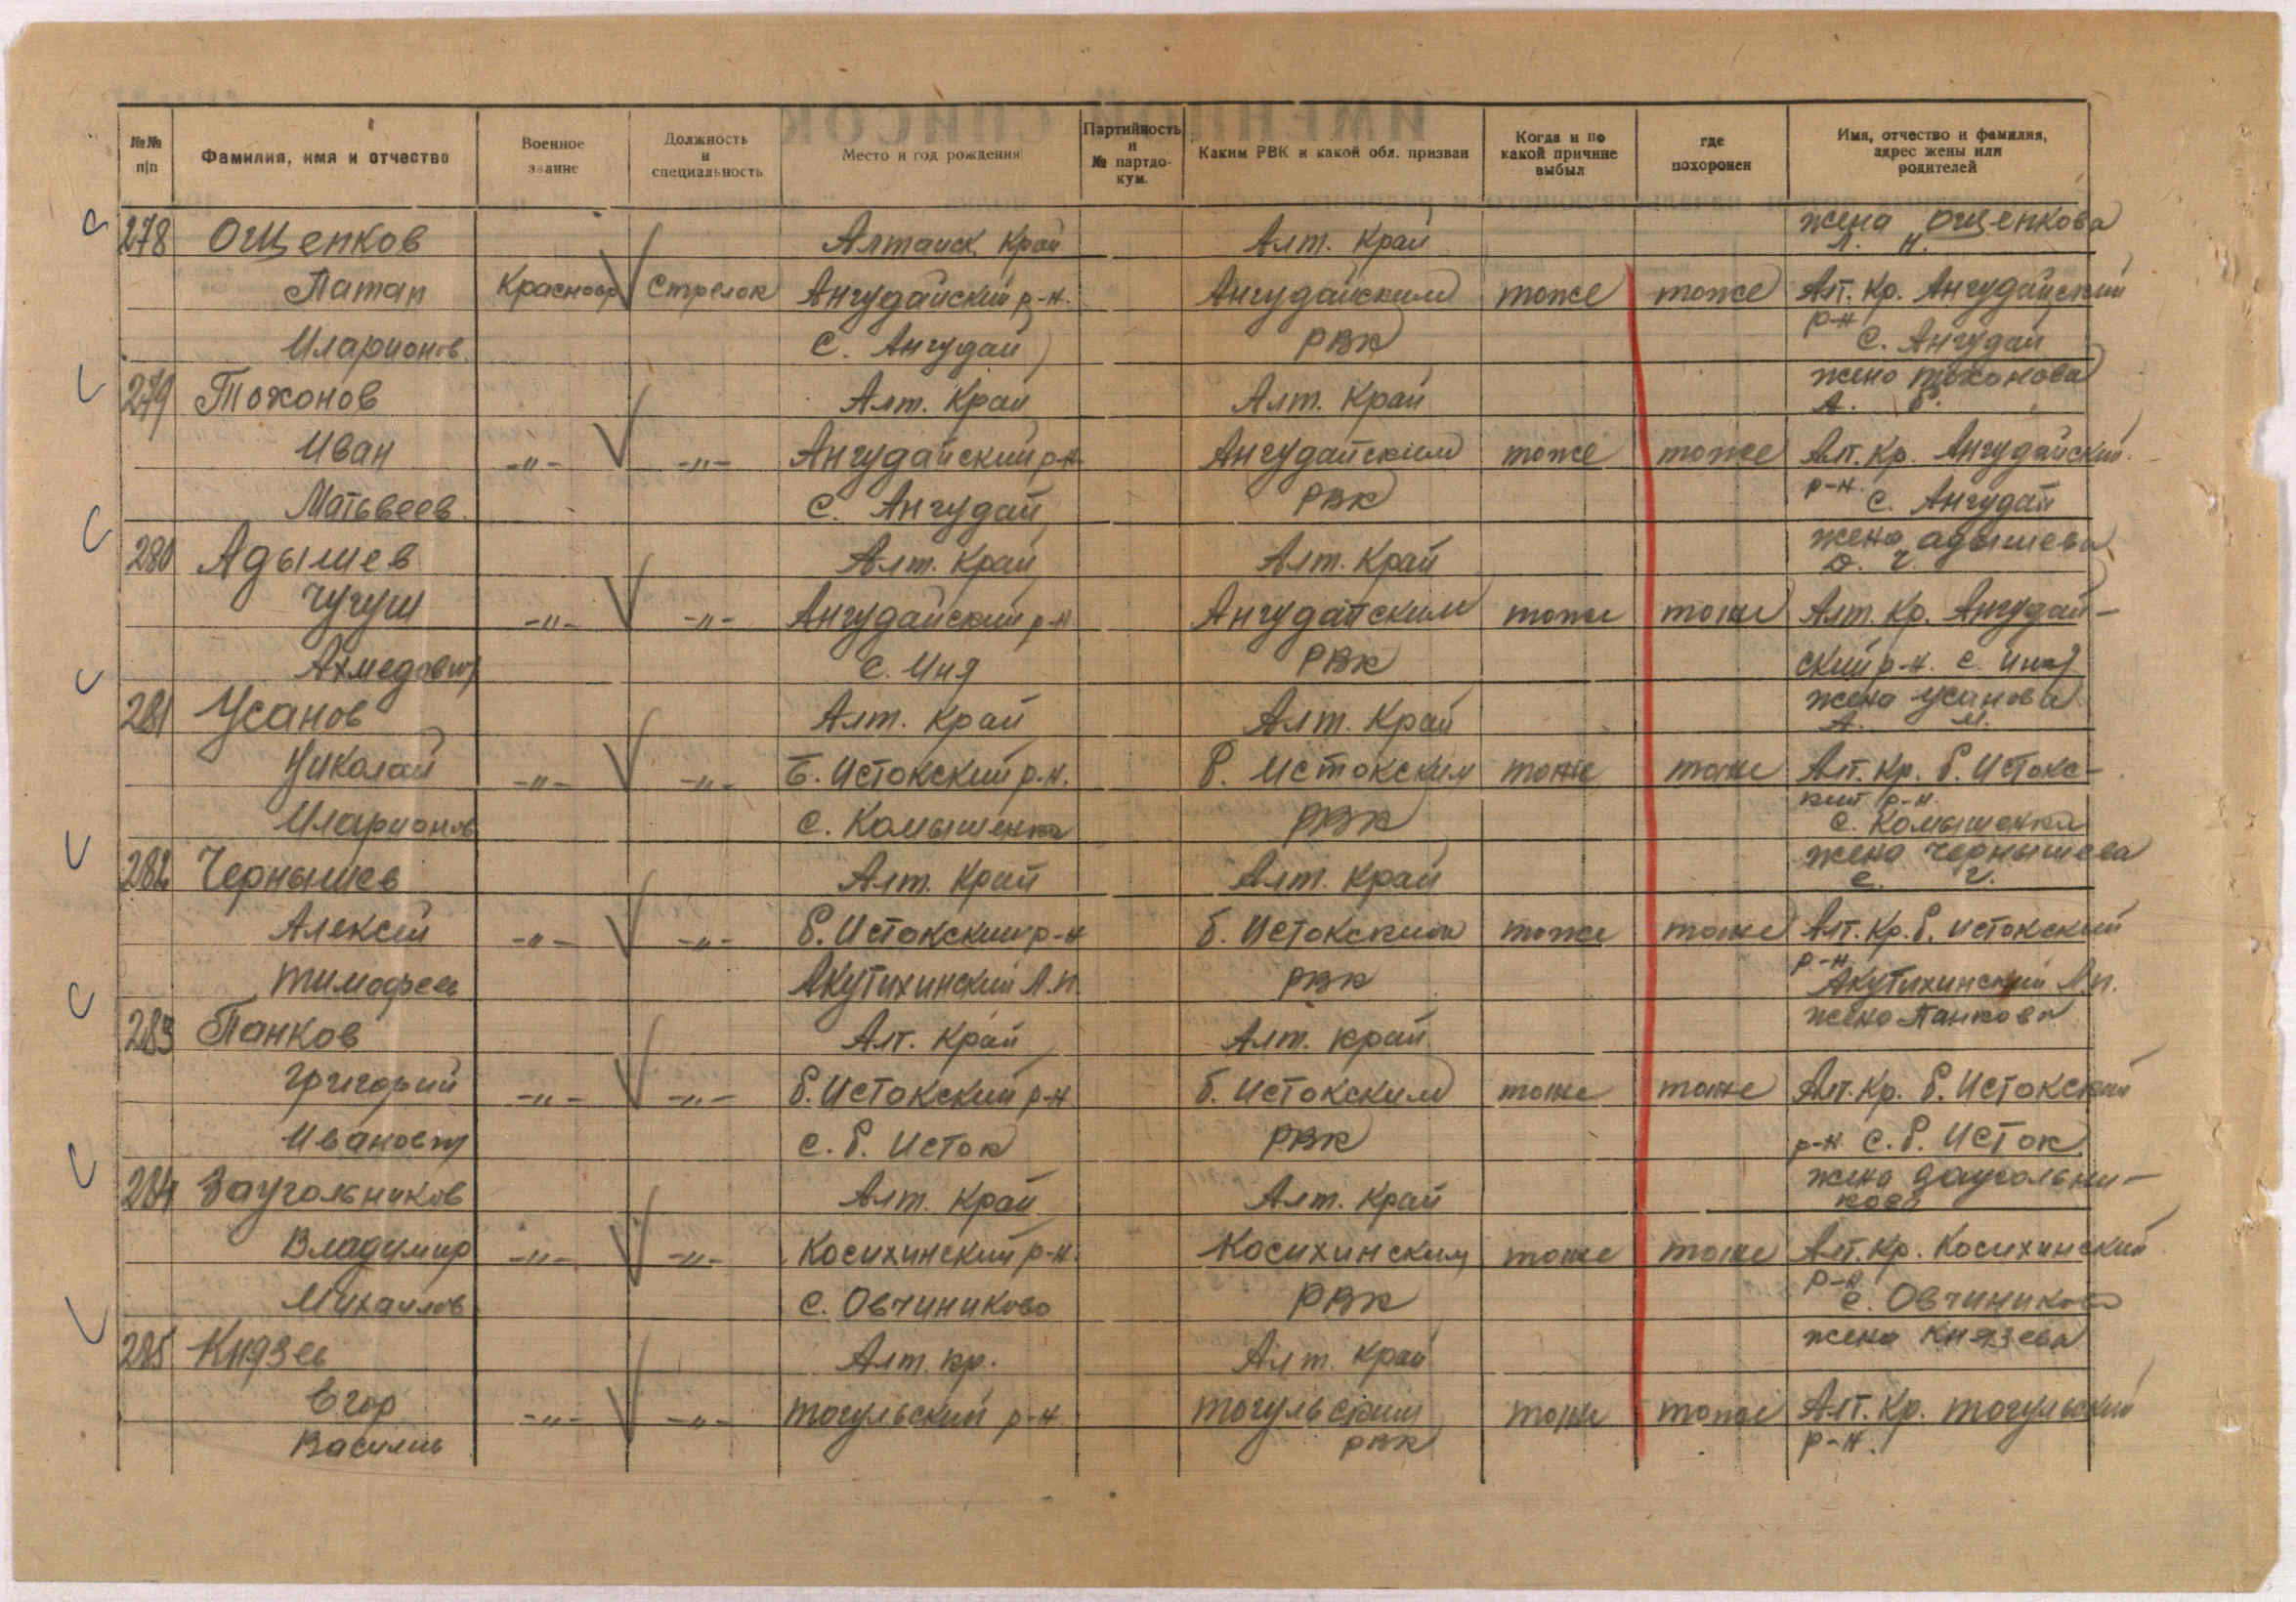 №№ п|п Фамилия, имя и отчество Военное звание Должность и специальность Место и год рождения Партийность и № партдокум. Каким РВК и какой обл. призван Когда и по какой причине выбыл где похоронен Имя, отчество и фамилия, адрес жены или родителей
278 Ощепков Алтайск Край Алт. Край жена Ощепкова Л. Н.
Патап Красноар Стрелок Ангудайский р-н. Ангудайским тоже тоже Алт. Кр. Ангудайский р-н
Иларионов. С. Ангудай РВК С. Ангудай
279 Тохонов Алт. Край Алт. Край жена Тохонова А. Б.
Иван -"- -"- Ангудайский р-н Ангудайским тоже тоже Алт. Кр. Ангудайский р-н.
Матьвеев. С. Ангудай РВК С. Ангудай
280 Адышев Алт. Край Алт. Край жена Адышева О. Ч.
Чугуш -"- -"- Ангудайский р-н Ангудайским тоже тоже Алт. Кр. Ангудай-
Ахмедович С. Иня РВК ский р-н. С. Иня
281 Усанов Алт. Край Алт. Край жена Усанова А. М.
Николай -"- -"- Б. Истокский р.н. Б. Истокским тоже тоже Алт. Кр. Б. Истокс-
Иларионов С. Комышенка РВК кий р-н. С. Комышенка
282 Чернышев Алт. Край Алт. Край жена Чернышева Е. Г.
Алексей -"- -"- Б. Истокский р-н Б. Истокским тоже тоже Алт. Кр. Б. Истокский р-н
Тимофеев Акутихинский Л.п. РВК Акутихинский Л.п.
283 Панков Алт. Край Алт. Край жена Панкова
Григорий -"- -"- Б. Истокский р-н Б. Истокским тоже тоже Алт. Кр. Б. Истокский
Иванович С. Б. Исток РВК р-н С. Б. Исток
284 Заугольников Алт. Край Алт. Край жена Заугольни-кова
Владимир -"- -"- Косихинский р-н. Косихинским тоже тоже Алт. Кр. Косихинский р-н
Михайлов С. Овчиниково РВК С. Овчиниково
285 Князев Алт. кр. Алт. Край жена Князева
Егор -"- -"- Тогульский р-н Тогульским тоже тоже Алт. Кр. Тогульский
Василь РВК р-н.